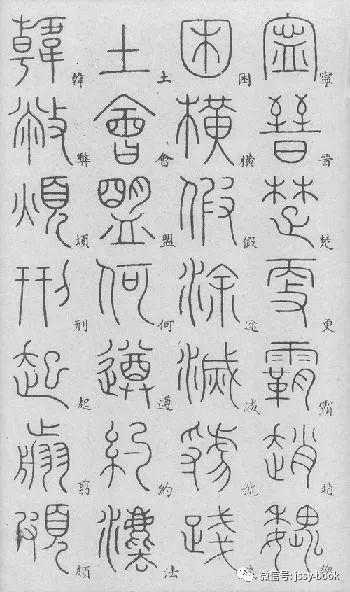 寧晉楚更霸趙魏
困橫假途滅虢踐
土會盟何遵約法
韓弊煩刑起翦頗
微信号:jssy-book